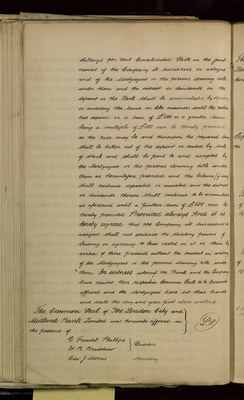 shillings per cent Consolidated Stock in the joint
names of the Company its successors or assigns
and of the Mortgagors or the persons deriving title
under them and the interest or dividends on the
deposit or the Stock shall be accumulated by deposit
or investing the same in like manner until the
that expires or a sum of £500 or a greater sum
being a multiple of £500 can be thereby provided
as the case may be and thereupon the required sum
shall be taken out of the deposit or raised by sale
of Stock and shall be paid to and accepted by
the Mortgagees or the persons deriving title under
them as hereinbefore provided and the balance if any
shall continue deposited or invested and the interest
or dividends thereon shall continue to be accumulated
as aforesaid until a further sum of £500 can be
thereby provided Provided always And it is
hereby agreed that the Company its successors or
assigns shall not exercise the statutory powers of
leasing or agreeing to lease vested in it or them by
virtue of these presents without the consent in writing
of the Mortgagees or the persons deriving title under
them In witness whereof the Bank and the Company
have caused their respective Common Seals to be hereunto
affixed and the Mortgagors have set their hands
and seals the day and year first above written
The Common Seal of The London City and
Midland Bank Limited was hereunto affixed in
the presence of
G Faudel Phillips
W. R. Bradshaw
Directors
Edw J Morris
Secretary
L.S.